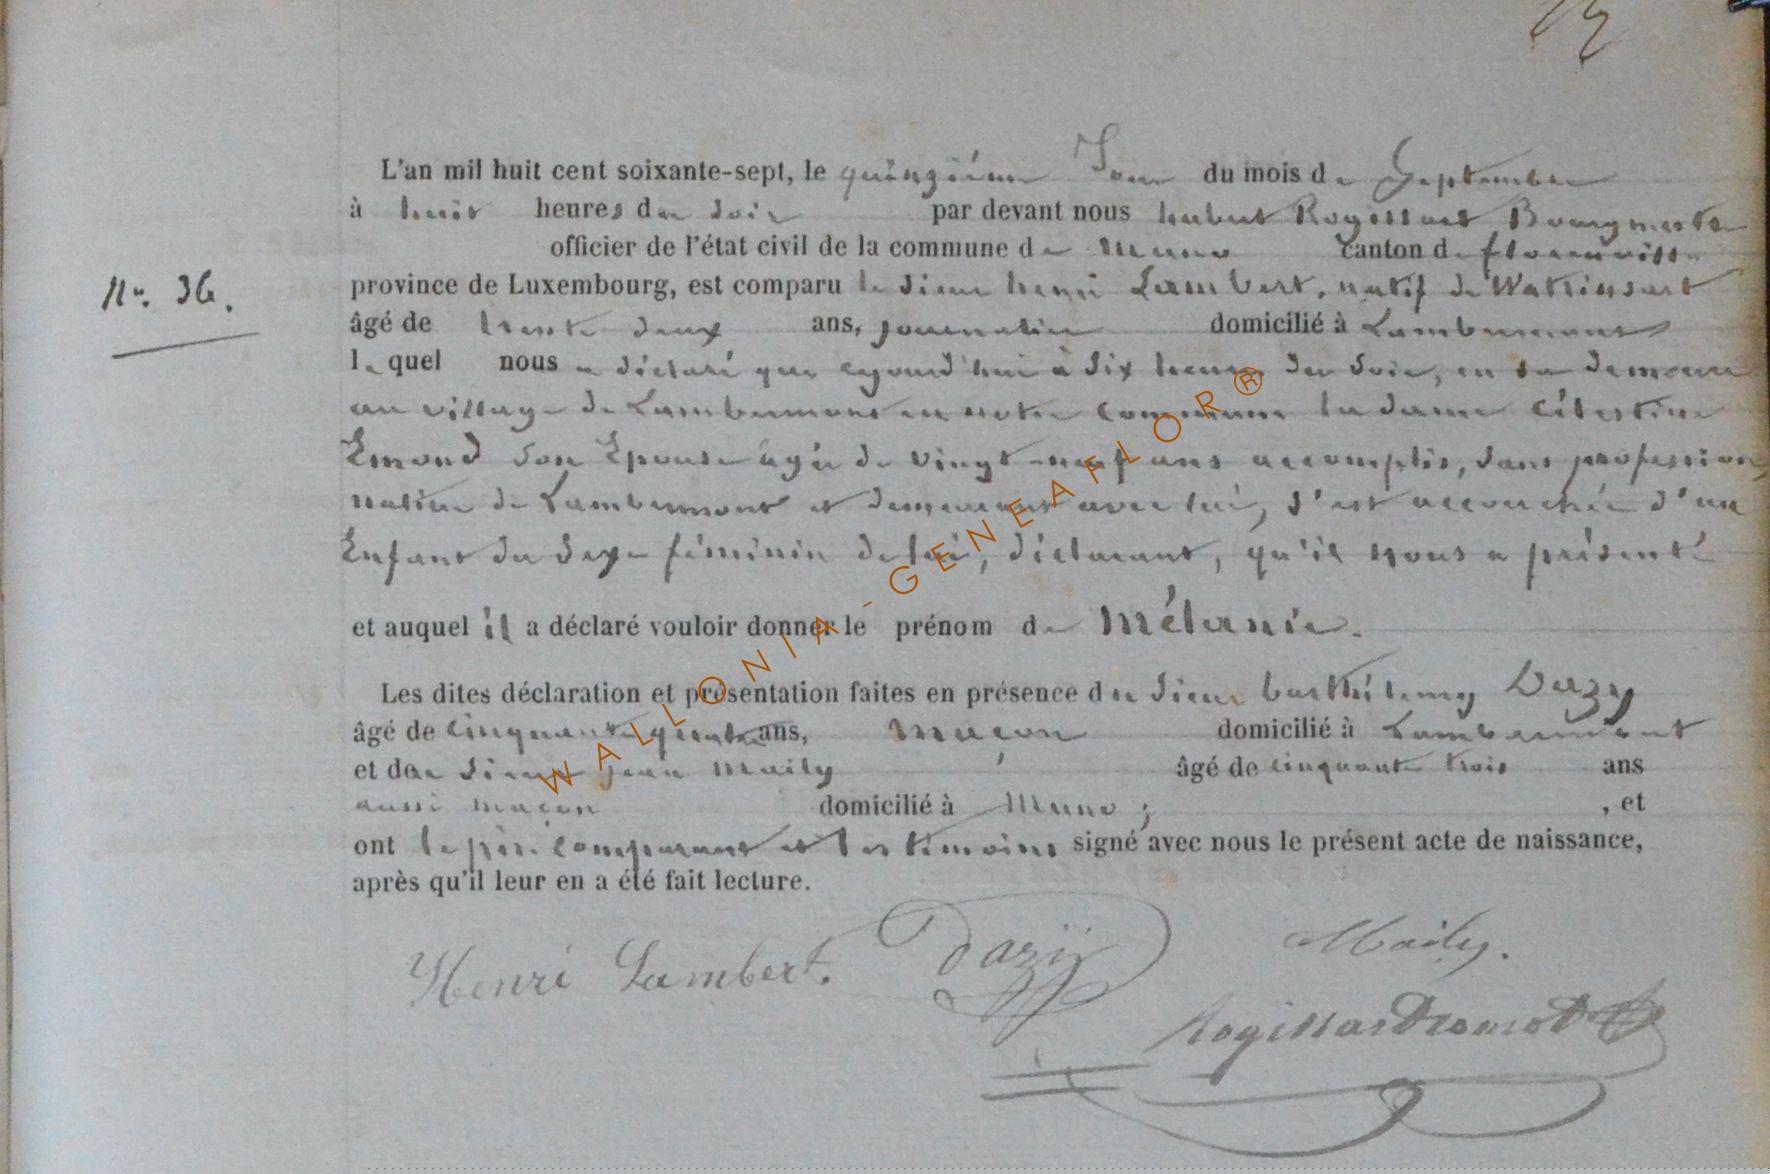 L'an mil huit cent soixante-sept, le quinzième Jour du mois de Septembre
à huit heures du soir par devant nous hubert Rogissart Bourgmestre
officier de l'état civil de la commune de Muno canton de florenville
N°. 36.
province de Luxembourg, est comparu le sieur henri Lambert, natif de Watrinsart
âgé de trente deux ans, journalier domicilié à Lambermont
lequel nous a déclaré que cejourd'hui à six heures du soir, en sa demeure
au village de Lambermont en notre commune la dame Célestine
Emond son Epouse âgée de vingt-neuf ans accomplis, sans profession,
native de Lambermont et demeurant avec lui, s'est accouchée d'un
Enfant du sexe féminin de lui, déclarant, qu'il nous a présenté
et auquel il a déclaré vouloir donner le prénom de Mélanie.
Les dites déclaration et présentation faites en présence du sieur barthélemy Dazy
âgé de cinquante quatre ans, maçon domicilié à Lambermont
et de sieur jean Maily âgé de cinquante trois ans
aussi maçon domicilié à Muno ; , et
ont le père comparant et les témoins signé avec nous le présent acte de naissance,
après qu'il leur en a été fait lecture.
Henri Lambert. Dazÿ Maily.
Rogissart
WALLONIA-GENEAFLOR®